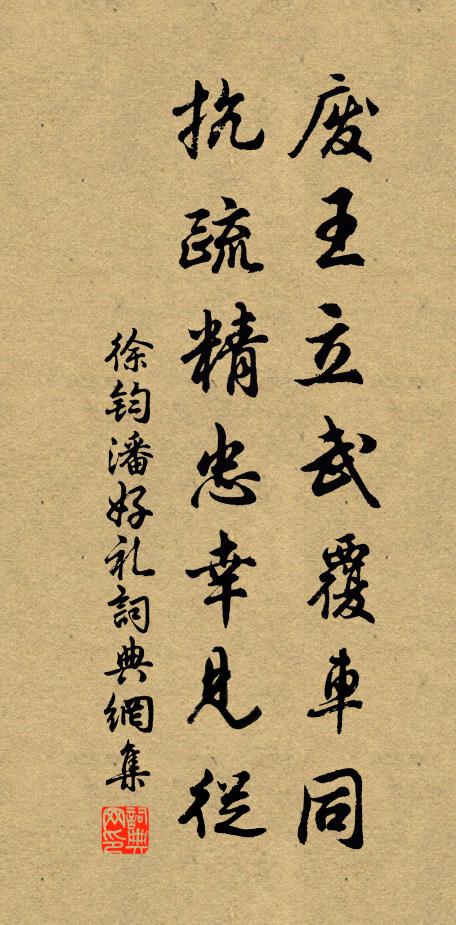 废王立武覆車同
抗疏精忠幸見從
徐钧潘好礼詞典網集
詞典网印